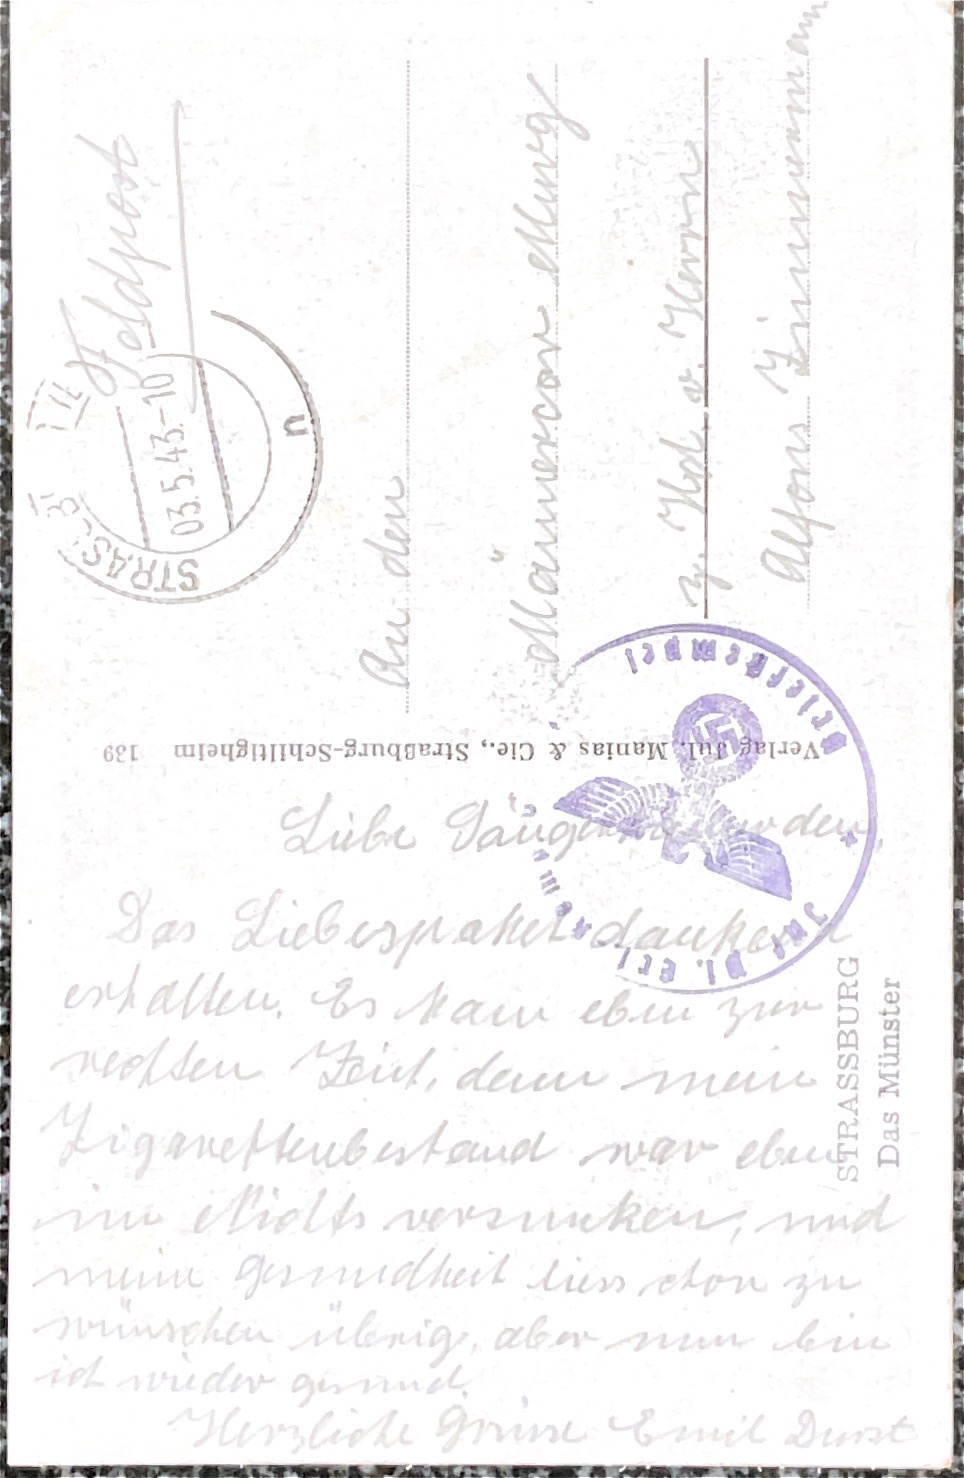 Feldpost
STRASSB
03.5.43.-10
n
An den
Männerchor Murg
z. Hd. v. Herrn
Alfons Zimmermann
Verlag Jul. Manias & Cie., Straßburg-Schiltigheim 139
Briefstempel
STRASSBURG
Das Münster
Liebe Sangesfreunden,
Das Liebespaket dankend
erhalten. Es kam eben zur
rechten Zeit, denn mein
Zigarettenbestand war eben
im Nichts versunken, und
meine Gesundheit liess zu
wünschen übrig, aber nun bin
ich wieder gesund.
Herzliche Grüsse Emil Durst